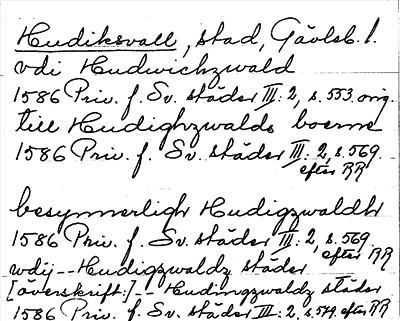 Hudiksvall, stad, Gävleb. l.
vdi Hudwichzwald
1586 Priv. f. Sv. städer III: 2, s. 553. orig.
till Hudighzwalds boerne
1586 Priv. f. Sv. städer III: 2, s. 569.
efter RR
besynnerligh Hudigzwaldh
1586 Priv. f. Sv. städer III: 2, s. 569.
efter RR
wdij -- Hudigzwaldz städer
[överskrift:] -- Hudingzwaldz städer
1586 Priv. f. Sv. städer III: 2, s. 574. efter RR